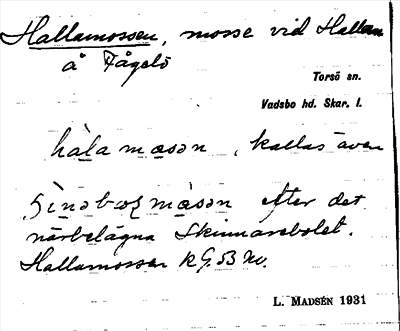 Hallamossen, mosse vid Hallan
å Fågelö
Torsö sn.
Vadsbo hd. Skar. l.
hàla mɷsən, kallas även
ʃìnəbɷɭmɷ̀sən efter det
närbelägna Skinnarebolet.
Hallamossen kG. 53 NV.
L. MADSÉN 1931